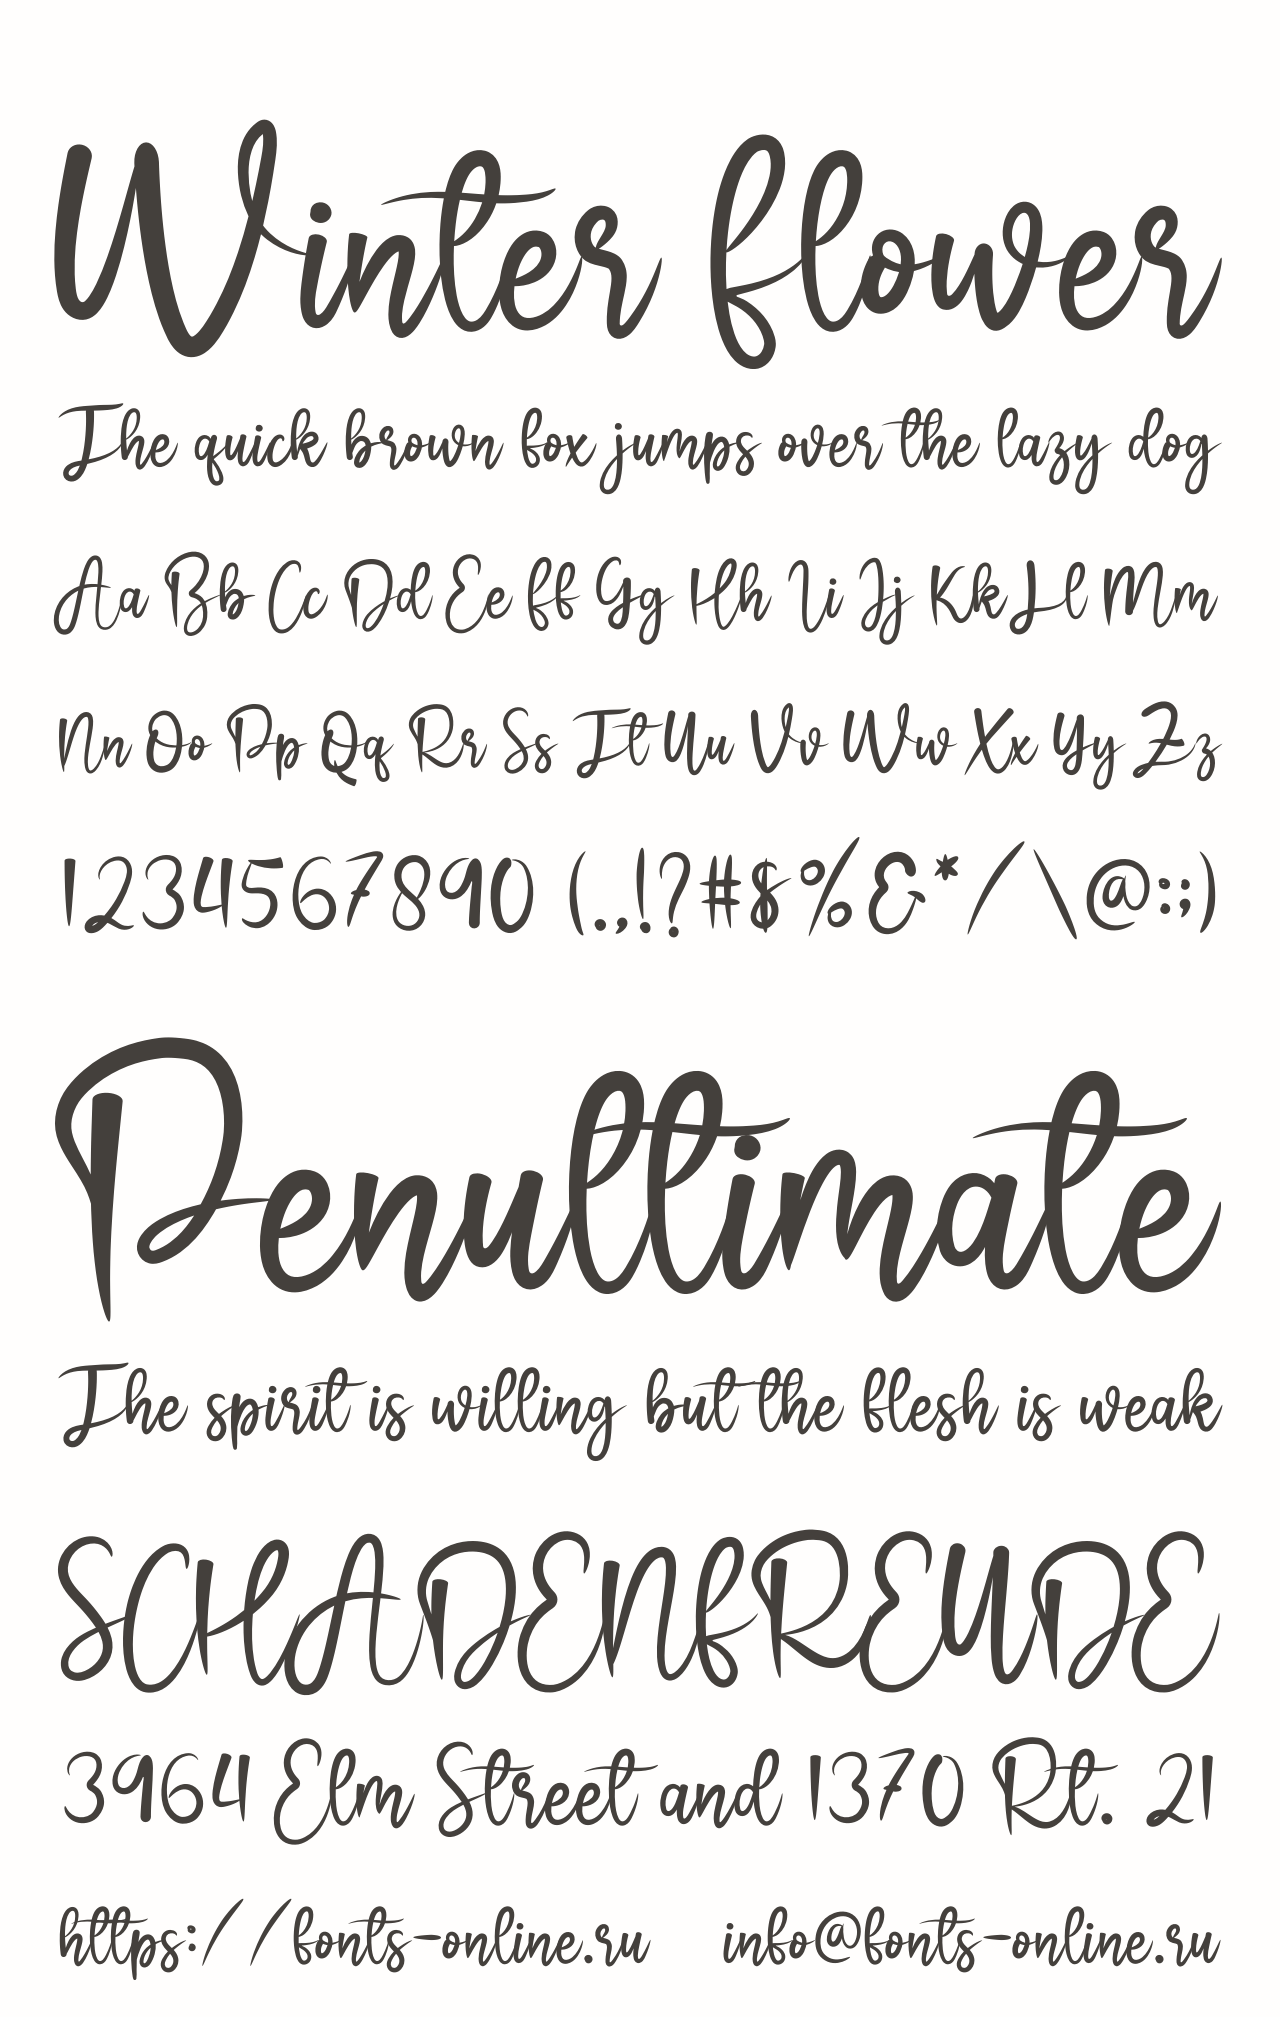 Winter flower
The quick brown fox jumps over the lazy dog
Aa Bb Cc Dd Ee Ff Gg Hh Ii Jj Kk Ll Mm
Nn Oo Pp Qq Rr Ss Tt Uu Vv Ww Xx Yy Zz
1234567890 (.,!?#$%&*/\@:;)
Penultimate
The spirit is willing but the flesh is weak
SCHADENFREUDE
3964 Elm Street and 1370 Rt. 21
https://fonts-online.ru info@fonts-online.ru